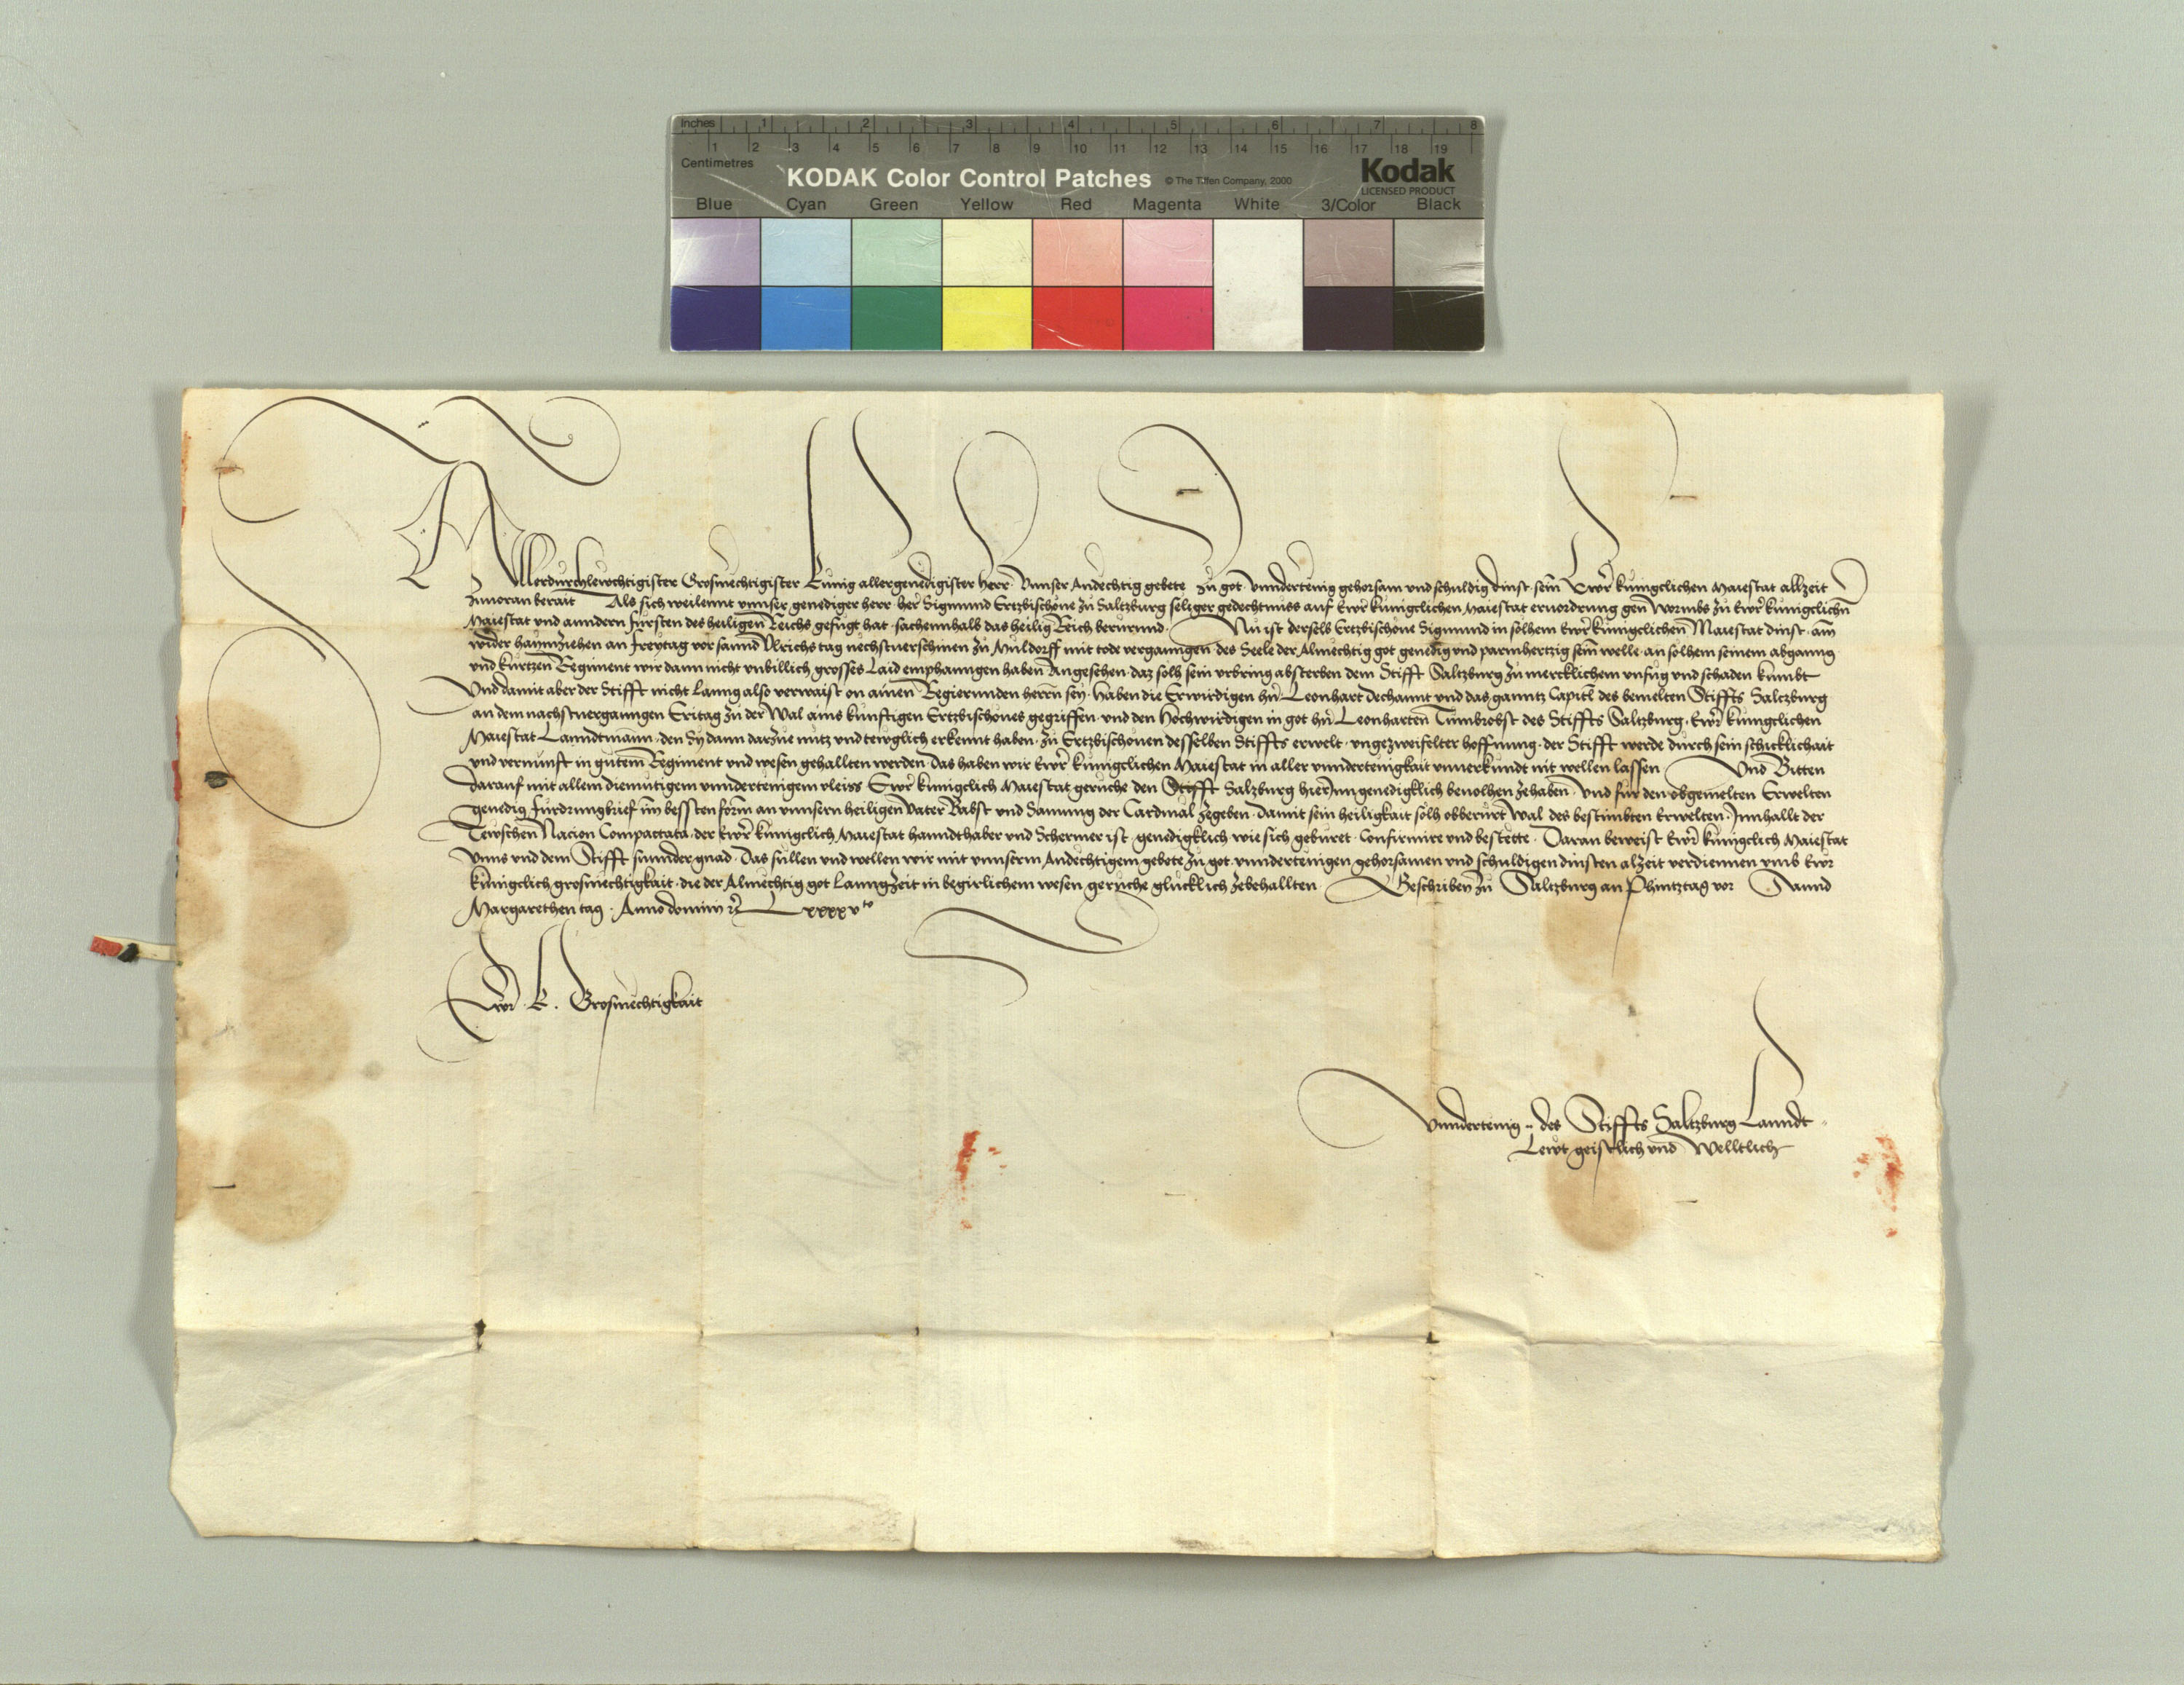 Inches 1 2 3 4 5 6 7 8
1 2 3 4 5 6 7 8 9 10 11 12 13 14 15 16 17 18 19
Centimetres
KODAK Color Control Patches © The Tiffen Company, 2000 Kodak
LICENSED PRODUCT
Blue Cyan Green Yellow Red Magenta White 3/Color Black
Allerdurchlewchtigister Grosmechtigister Kunig allergenedigister herr. Vnnser Andechtig gebete zu got vnndertenig gehorsam vnd schuldig dinst sein Ewr kuniglichen Maiestat allzeit
zuuoran berait Als sich weilennt vnnser genediger herr her Sigmund Ertzbischoue zu Saltzburg seliger gedechtnuss auf Ewr kuniglichen Maiestat eruordrung gen Wormbs zu Ewr kuniglichn
Maiestat vnd anndern fursten des heiligen Reichs gefugt hat sachennhalb das heilig Reich berurund. Nu ist derselb Ertzbischoue Sigmund in solhem Ewr kuniglichen Maiestat dinst am
wider haymziehen an freytag vor sannd Vlrichs tag nechstuerschinen zu Muldorff mit tode verganngen des Seele der Almechtig got genedig vnd parmhertzig sein welle an solhem seinem abganng
vnd kurtzen Regiment wir dann nicht vnbillich grosses Laid emphanngen haben Angesehen daz solh sein vrbring absterben dem Stifft Saltzburg zu mercklichem vnfug vnd schaden kumbt
Vnd damit aber der Stifft nicht lanng also verwaist on ainen Regierunden herrn sey. Haben die Erwirdigen hn Leonhart Dechannt vnd das ganntz Capitl des bemelten Stiffts Saltzburg
an dem nachstuerganngen Eritag zu der Wal ains kunftigen Ertzbischoues gegriffen vnd den Hochwirdigen in got hn Leonharten Tumbrobst des Stiffts Saltzburg. Ewr kuniglichen
Maiestat Lanndtmann. den Sy dann darzue nutz vnd tewglich erkennt haben. zu Ertzbischouen desselben Stiffts erwelt. vngezweifelter hoffnung. der Stifft werde durch sein schicklichait
vnd vernunft in gutem Regiment vnd wesen gehallten werden. Das haben wir Ewr kuniglichen Maiestat in aller vnndertenigkait vnuerkundt nit wellen lassen. Vnd Bitten
darauf mit allem diemutigem vnndertenigem vleiss Ewr kuniglich Maiestat geruche den Stifft Saltzburg hierInn genedigklich beuolhen zehaben Vnd fur den obgemelten Erwelten
genedig furdrungbrief im bessten form an vnnsern heiligen Vater Babst vnd Samung der Cardinal zegeben. Damit sein heiligkait solh obberurt Wal des bestimbten Erwelten. Innhallt der
Tewschen Nacion Compactata. der Ewr kuniglich Maiestat hanndthaber vnd Schermer ist. genedigklich wie sich geburet. Confirmire vnd bestette. Daran beweist Ewr kuniglich Maiestat
vnns vnd dem Stifft sunnder gnad. Das sullen vnd wellen wir mit vnnserm Andechtigem gebete zu got vnndertenigen gehorsamen vnd schuldigen dinsten alzeit verdiennen vmb Ewr
kuniglich grosmechtigkait. die der Almechtig got lanngzeit in begirlichem wesen geruche glucklich zebehallten. Geschriben zu Saltzburg an Phintztag vor Sannd
Margarethen tag. Anno domini etc Lxxxxvto
Ewr k. Grosmechtigkait
Vnndertenig des Stiffts Saltzburg Lanndt
Lewt geistlich vnd Welltlich